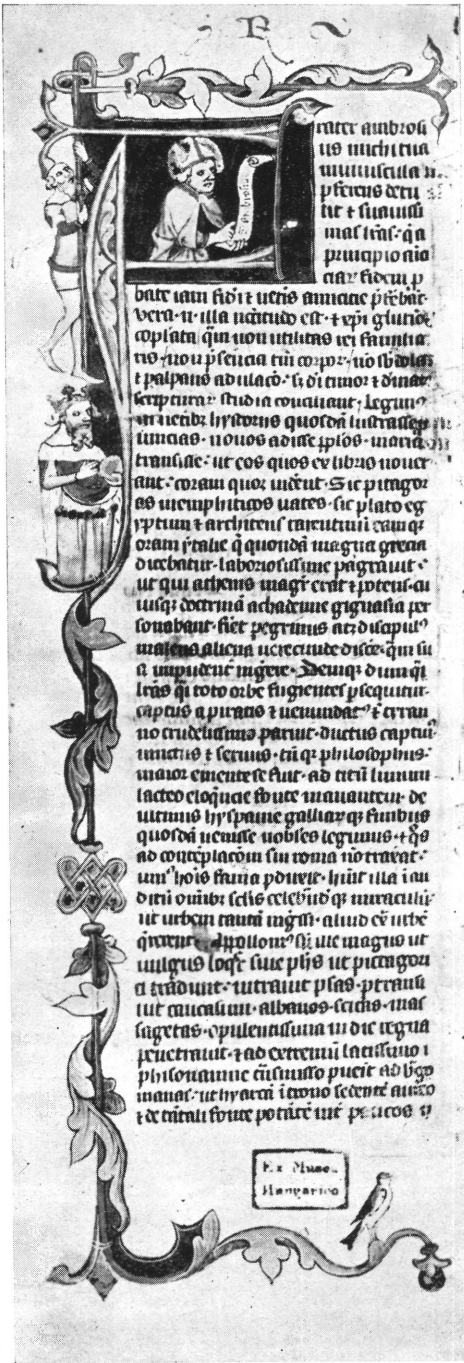 R
rater ambrosi
us michi tua
munuscula
pferens detu
lit & suavissi
mas lras q a
principio ami
ciar fidem p
bate iam fidi & vetis amicicie
vera n illa nccitudo est & xpi glutino
coplata qm non utilitas rei familia
ris no psencia tm corpor no sbdola
& palpans adulaco s di timor & divinar
scripturar studia conciliant Legim
in veteribr hystoriis quosda lustrasse p
vincias novos adisse pplos maria
transisse ut eos quos ex libris nover
ant coram quor viderent Sic pitagor
as memphiticos vates sic plato eg
yptum & architem tarentinu eam qr
oram ytalie q quonda magna grecia
dicebatur laboriosissime pagravit
ut qui athenis magr erat & potens cu
iusqr doctrina achademie gignasia per
sonabant fiet pegrinus atqr discipul
malens aliena verecunde discere qm su
a impudent ingere Deniqr dum qi
lras qi toto orbe fugientes psequitur
captus a piratis & venundat & tiran
no crudelissimo paruit ductus captiv
vinctus & servus tn qr philosophus
maior emente se fuit ad titu livium
lacteo eloqucie fonte manantem de
ultimis hyspanie galliar qr finibus
quosda venisse nobles legimus & qs
ad conteplacom sui roma no traxat
uni hois fama pduxit huit illa i au
ditu omibr sclis celebnd qr miraculu
ut urbem tanta ingssi aliud ex urbe
qrerent Appollon sive magus ut
vulgus loqr sive phs ut pictagori
ci tradunt intravit psas ptransi
vit caucasum albanos scitas mas
sagetas opulentissima indie regna
penetravit & ad extremu latissimo
phison amne tnsmisso puenit ad bgo
manas ut hyarca i trono sedente aureo
& de tantali fonte potante int paucos
Ex Museo
Hungarico